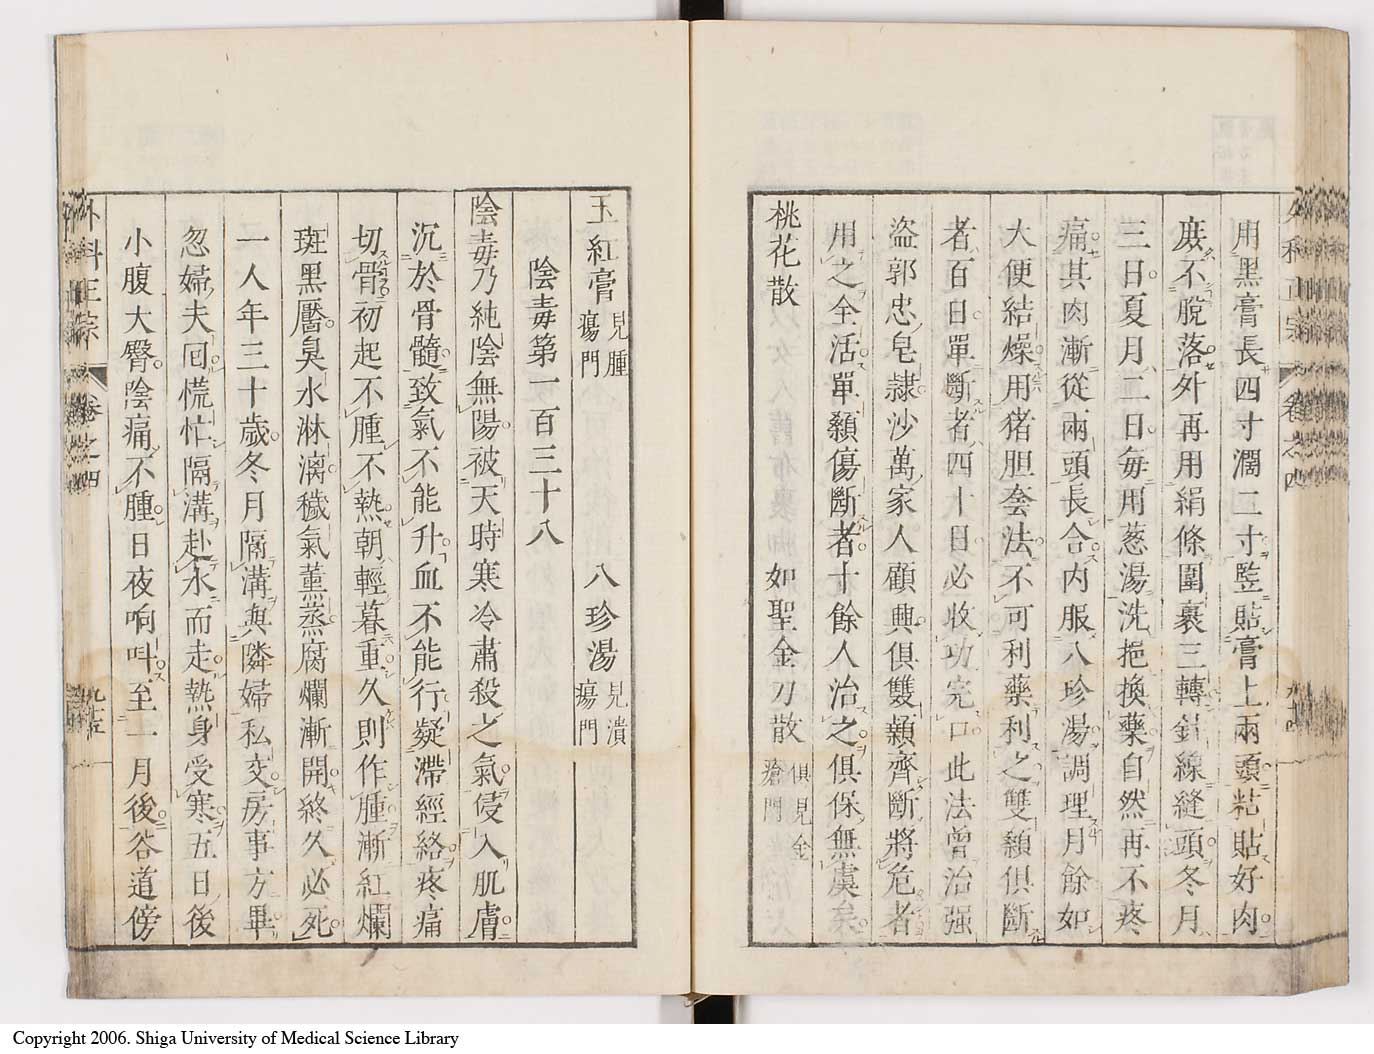 用黑膏長四寸濶二寸竪貼膏上兩頭粘貼好肉
庶不脫落外再用絹條圍裹三轉針線縫頭冬月
三日夏月二日每用葱湯洗挹換藥自然再不疼
痛其肉漸從兩頭長合内服八珍湯調理月餘如
大便結燥用猪胆套法不可利藥利之雙顙俱斷
者百日單斷者四十日必收功完口此法曾治强
盜郭忠皂隷沙萬家人顧興俱雙顙齊斷將危者
用之全活單顙傷斷者十餘人治之俱保無虞矣
桃花散 如聖金刀散 俱見金瘡門
外科正宗 卷之四 九十五
玉紅膏 見腫瘍門 八珍湯 見潰瘍門
陰毒第一百三十八
陰毒乃純陰無陽被天時寒冷肅殺之氣侵入肌膚
沉於骨髓致氣不能升血不能行凝滯經絡疼痛
切骨初起不腫不熱朝輕暮重久則作腫漸紅爛
斑黑靨臭水淋漓穢氣薰蒸腐爛漸開終久必死
一人年三十歲冬月隔溝與隣婦私交房事方畢
忽婦夫回慌忙隔溝赴水而走熱身受寒五日後
小腹大臀陰痛不腫日夜响叫至一月後谷道傍
Copyright 2006. Shiga University of Medical Science Library